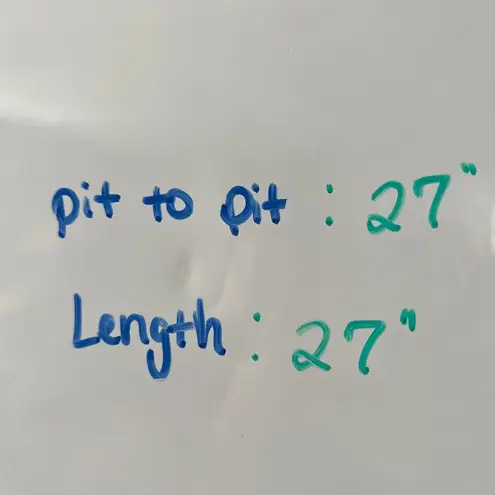 pit to pit : 27"
Length : 27"